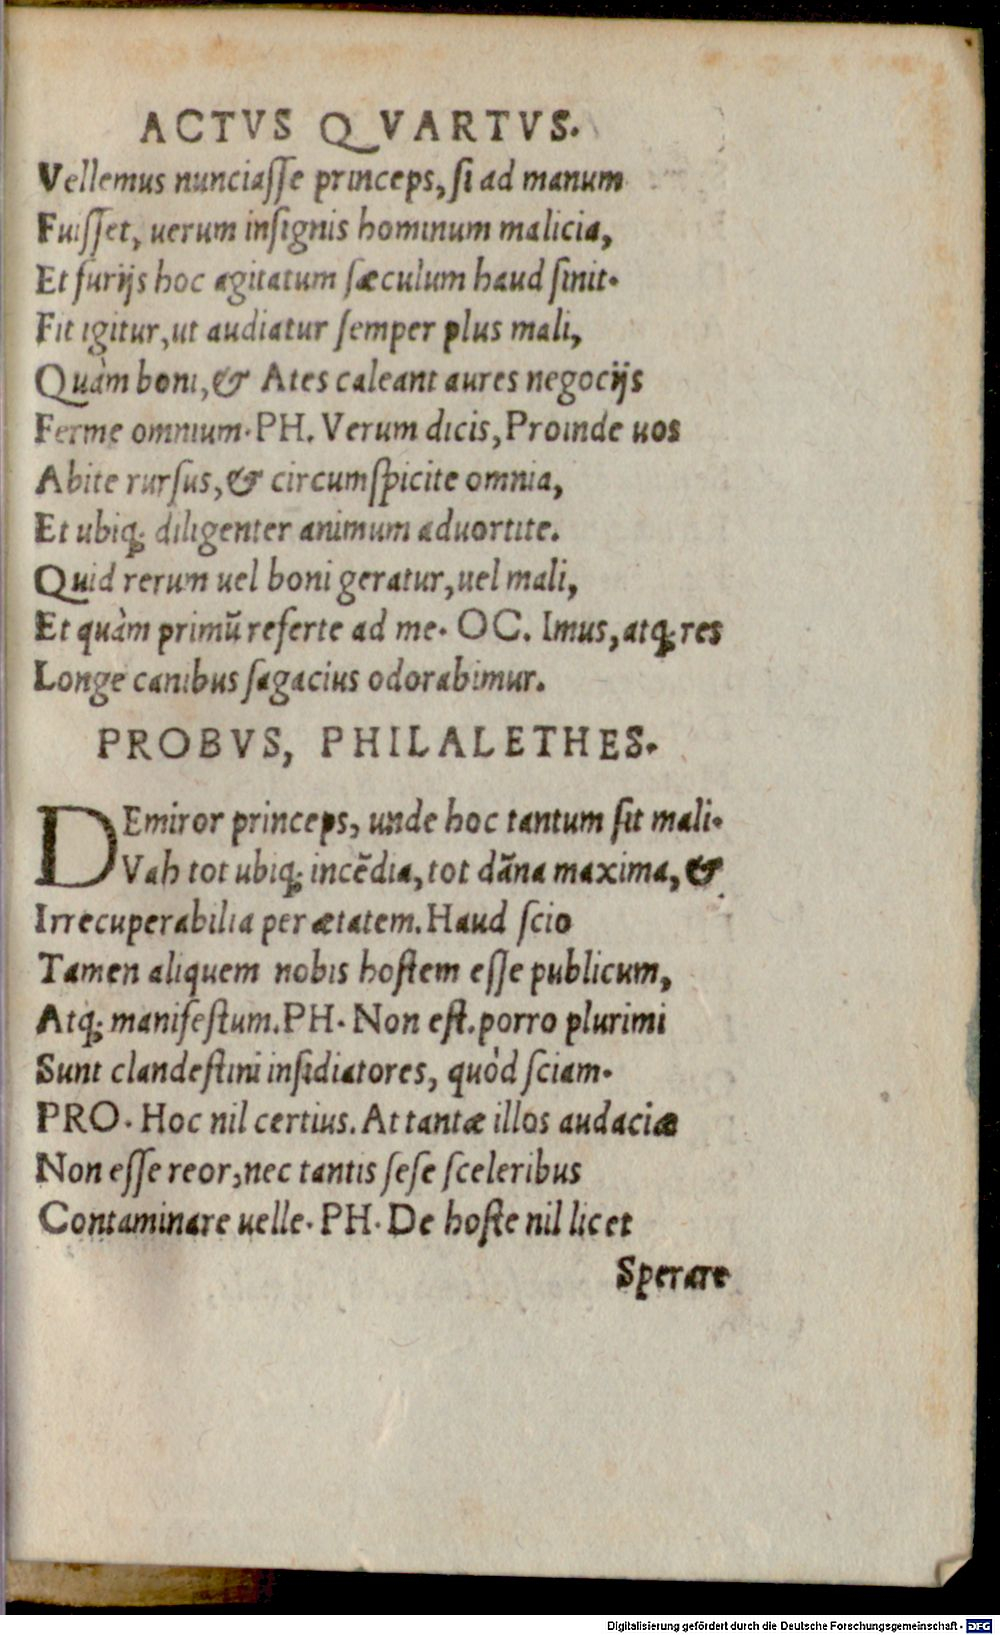 ACTVS QVARTVS.
Vellemus nunciaſſe princeps, ſi ad manum
Fuiſſet, uerum inſignis hominum malicia,
Et furijs hoc agitatum ſæculum haud ſinit.
Fit igitur, ut audiatur ſemper plus mali,
Quàm boni, & Ates caleant aures negocijs
Ferme omnium. PH. Verum dicis, Proinde uos
Abite rurſus, & circumſpicite omnia,
Et ubiq; diligenter animum aduortite.
Quid rerum uel boni geratur, uel mali,
Et quàm primũ referte ad me. OC. Imus, atq; res
Longe canibus ſagacius odorabimur.
PROBVS, PHILALETHES.
DEmiror princeps, unde hoc tantum ſit mali.
Vah tot ubiq; incẽdia, tot dãna maxima, &
Irrecuperabilia per ætatem. Haud ſcio
Tamen aliquem nobis hoſtem eſſe publicum,
Atq; manifeſtum. PH. Non eſt. porro plurimi
Sunt clandeſtini inſidiatores, quòd ſciam.
PRO. Hoc nil certius. At tantæ illos audaciæ
Non eſſe reor, nec tantis ſeſe ſceleribus
Contaminare uelle. PH. De hoſte nil licet
Sperare
Digitalisierung gefördert durch die Deutsche Forschungsgemeinschaft - DFG